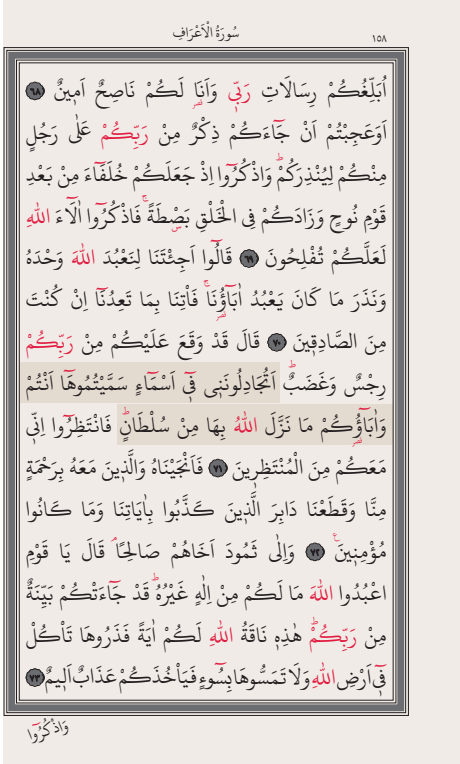 سُورَةُ الْاَعْرَافِ
١٥٨
اُبَلِّغُكُمْ رِسَالَاتِ رَبّ۪ي وَاَنَا۬ لَكُمْ نَاصِحٌ اَم۪ينٌ ﴿٦٨﴾
اَوَعَجِبْتُمْ اَنْ جَٓاءَكُمْ ذِكْرٌ مِنْ رَبِّكُمْ عَلٰى رَجُلٍ
مِنْكُمْ لِيُنْذِرَكُمْۜ وَاذْكُرُٓوا اِذْ جَعَلَكُمْ خُلَفَٓاءَ مِنْ بَعْدِ
قَوْمِ نُوحٍ وَزَادَكُمْ فِي الْخَلْقِ بَصْۣطَةًۚ فَاذْكُرُٓوا اٰلَٓاءَ اللّٰهِ
لَعَلَّكُمْ تُفْلِحُونَ ﴿٦٩﴾ قَالُٓوا اَجِئْتَنَا لِنَعْبُدَ اللّٰهَ وَحْدَهُ
وَنَذَرَ مَا كَانَ يَعْبُدُ اٰبَٓاؤُ۬نَاۚ فَأْتِنَا بِمَا تَعِدُنَٓا اِنْ كُنْتَ
مِنَ الصَّادِق۪ينَ ﴿٧٠﴾ قَالَ قَدْ وَقَعَ عَلَيْكُمْ مِنْ رَبِّكُمْ
رِجْسٌ وَغَضَبٌۜ اَتُجَادِلُونَن۪ي ف۪ٓي اَسْمَٓاءٍ سَمَّيْتُمُوهَٓا اَنْتُمْ
وَاٰبَٓاؤُ۬كُمْ مَا نَزَّلَ اللّٰهُ بِهَا مِنْ سُلْطَانٍۜ فَانْتَظِرُٓوا اِنّ۪ي
مَعَكُمْ مِنَ الْمُنْتَظِر۪ينَ ﴿٧١﴾ فَاَنْجَيْنَاهُ وَالَّذ۪ينَ مَعَهُ بِرَحْمَةٍ
مِنَّا وَقَطَعْنَا دَابِرَ الَّذ۪ينَ كَذَّبُوا بِاٰيَاتِنَا وَمَا كَانُوا
مُؤْمِن۪ينَ۟ ﴿٧٢﴾ وَاِلٰى ثَمُودَ اَخَاهُمْ صَالِحًاۢ قَالَ يَا قَوْمِ
اعْبُدُوا اللّٰهَ مَا لَكُمْ مِنْ اِلٰهٍ غَيْرُهُۜ قَدْ جَٓاءَتْكُمْ بَيِّنَةٌ
مِنْ رَبِّكُمْۜ هٰذِه۪ نَاقَةُ اللّٰهِ لَكُمْ اٰيَةً فَذَرُوهَا تَأْكُلْ
ف۪ٓي اَرْضِ اللّٰهِ وَلَا تَمَسُّوهَا بِسُٓوءٍ فَيَأْخُذَكُمْ عَذَابٌ اَل۪يمٌ ﴿٧٣﴾
وَاذْكُرُٓوا